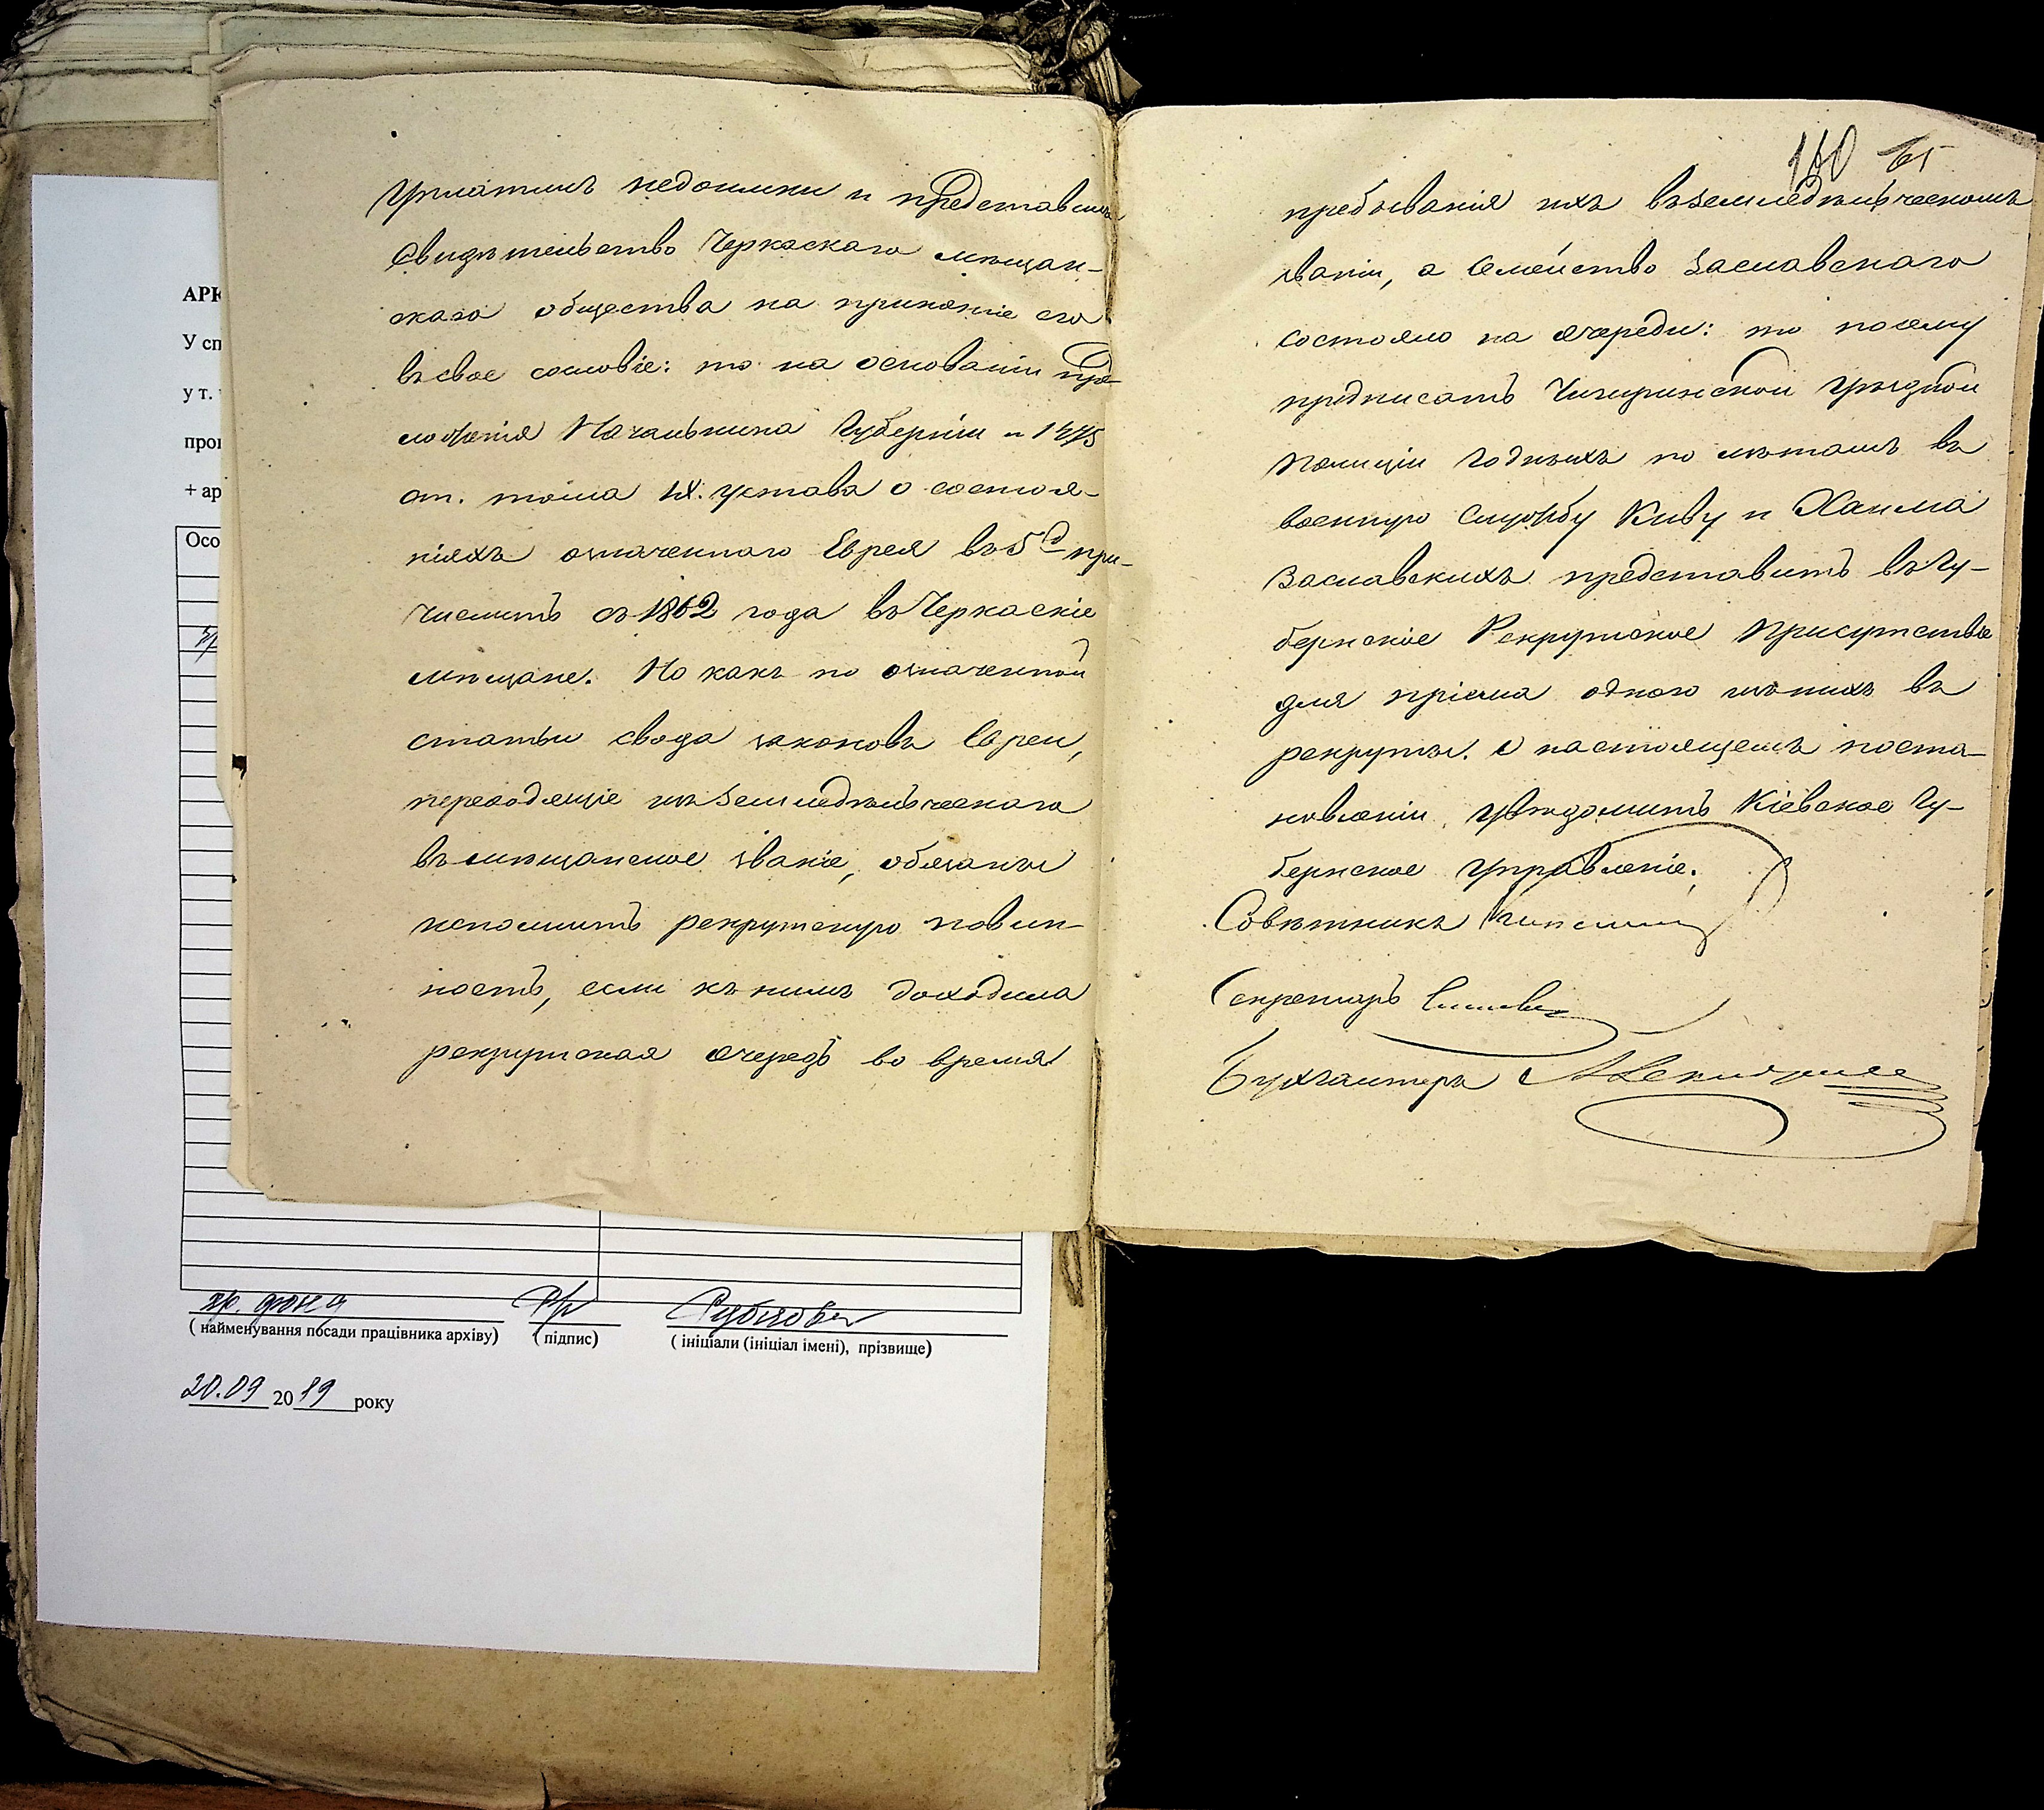 уплатилъ недоимки и представилъ
свидѣтельство Черкаскаго мѣщан-
скаго общества на принятіе его
въ свое сословіе: то на основаніи пред-
ложенія Начальника Губерніи и 1475
ст. тома IX. устава о состоя-
ніяхъ означеннаго Еврея въ 5 д. при-
числить съ 1862 года въ Черкаскіе
мѣщане. Но какъ по означенной
статьи свода законовъ Евреи,
переходящіе изъ земледѣльческаго
въ мѣщанское званіе, обязаны
исполнить рекрутскую повин-
ность, если къ нимъ доходила
рекрутская очередь во время
140 65
пребыванія ихъ въ земледѣльческомъ
званіи, а семейство Заславскаго
состояло на очереди: то посему
предписать Чигиринской Уѣздной
Полиціи годныхъ по лѣтамъ въ
военную службу Киву и Хаима
Заславскихъ представить въ Гу-
бернское Рекрутское Присутствіе
для пріема одного изъ нихъ въ
рекруты. О настоящемъ поста-
новленіи увѣдомить Кіевское Гу-
бернское Управленіе.
Совѣтникъ
Секретарь
Бухгалтеръ
АРК
У сп
у т.
про
+ ар
Осо
зр. фонд
( найменування посади працівника архіву)
( підпис)
( ініціали (ініціал імені), прізвище)
20.09 2019 року